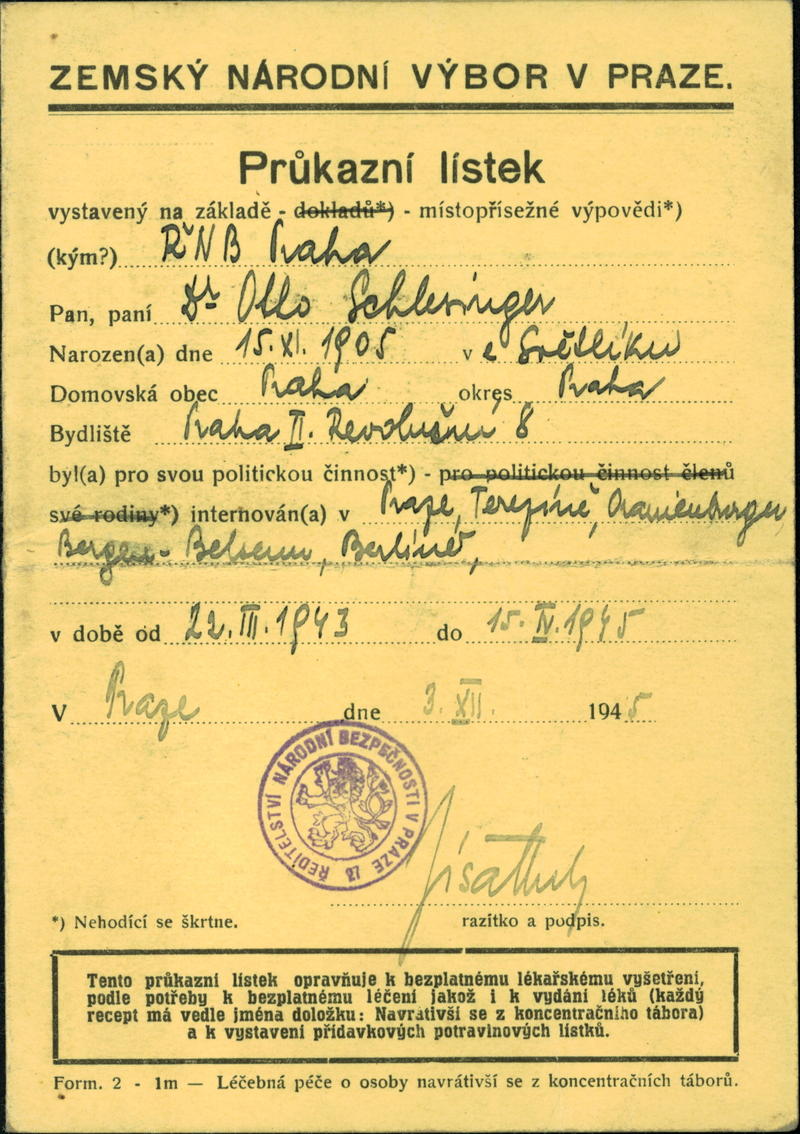 ZEMSKÝ NÁRODNÍ VÝBOR V PRAZE.
Průkazní lístek
vystavený na základě - dokladů*) - místopřísežné výpovědi*)
(kým?) ŘNB Praha
Pan, paní Dr Otto Schlesinger
Narozen(a) dne 15.XI.1905 v e Světlíku
Domovská obec Praha okres Praha
Bydliště Praha II. Revoluční 8
byl(a) pro svou politickou činnost*) - pro politickou činnost členů
své rodiny*) internován(a) v Praze, Terezíně, Oranienburger
Bergen-Belsenu, Berlíně,
v době od 22.III.1943 do 15.IV.1945
V Praze dne 3.XII. 1945
ŘEDITELSTVÍ NÁRODNÍ BEZPEČNOSTI V PRAZE
*) Nehodící se škrtne. razítko a podpis.
Tento průkazní lístek opravňuje k bezplatnému lékařskému vyšetření,
podle potřeby k bezplatnému léčení jakož i k vydání léků (každý
recept má vedle jména doložku: Navrátivší se z koncentračního tábora)
a k vystavení přídavkových potravinových lístků.
Form. 2 - 1m — Léčebná péče o osoby navrátivší se z koncentračních táborů.